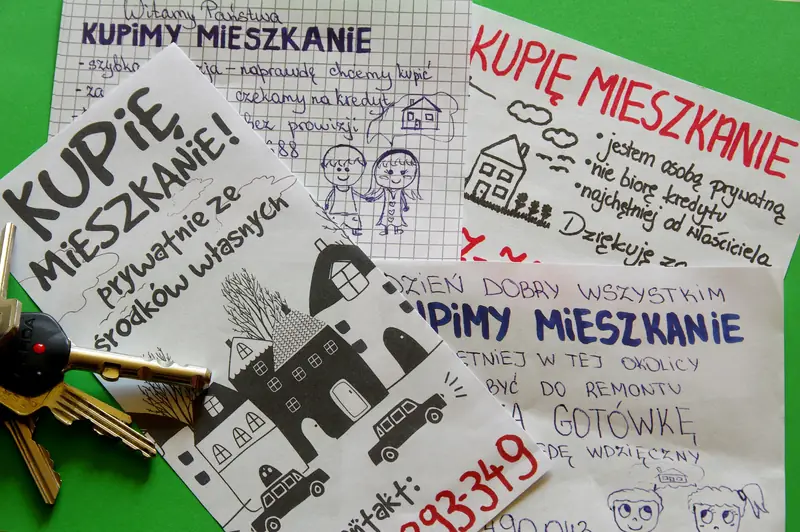 Witamy Państwa
KUPIMY MIESZKANIE
- naprawdę chcemy kupić
czekamy na kredyt
bez prowizji
88
KUPIĘ MIESZKANIE
• jestem osobą prywatną
• nie biorę kredytu
• najchętniej od właściciela
Dziękuję za
KUPIĘ
MIESZKANIE!
prywatnie ze
środków własnych
393-349
DZIEŃ DOBRY WSZYSTKIM
UPIMY MIESZKANIE
ETNIEJ W TEJ OKOLICY
BYĆ DO REMONTU
GOTÓWKĘ
DĘ WDZIĘCZNY